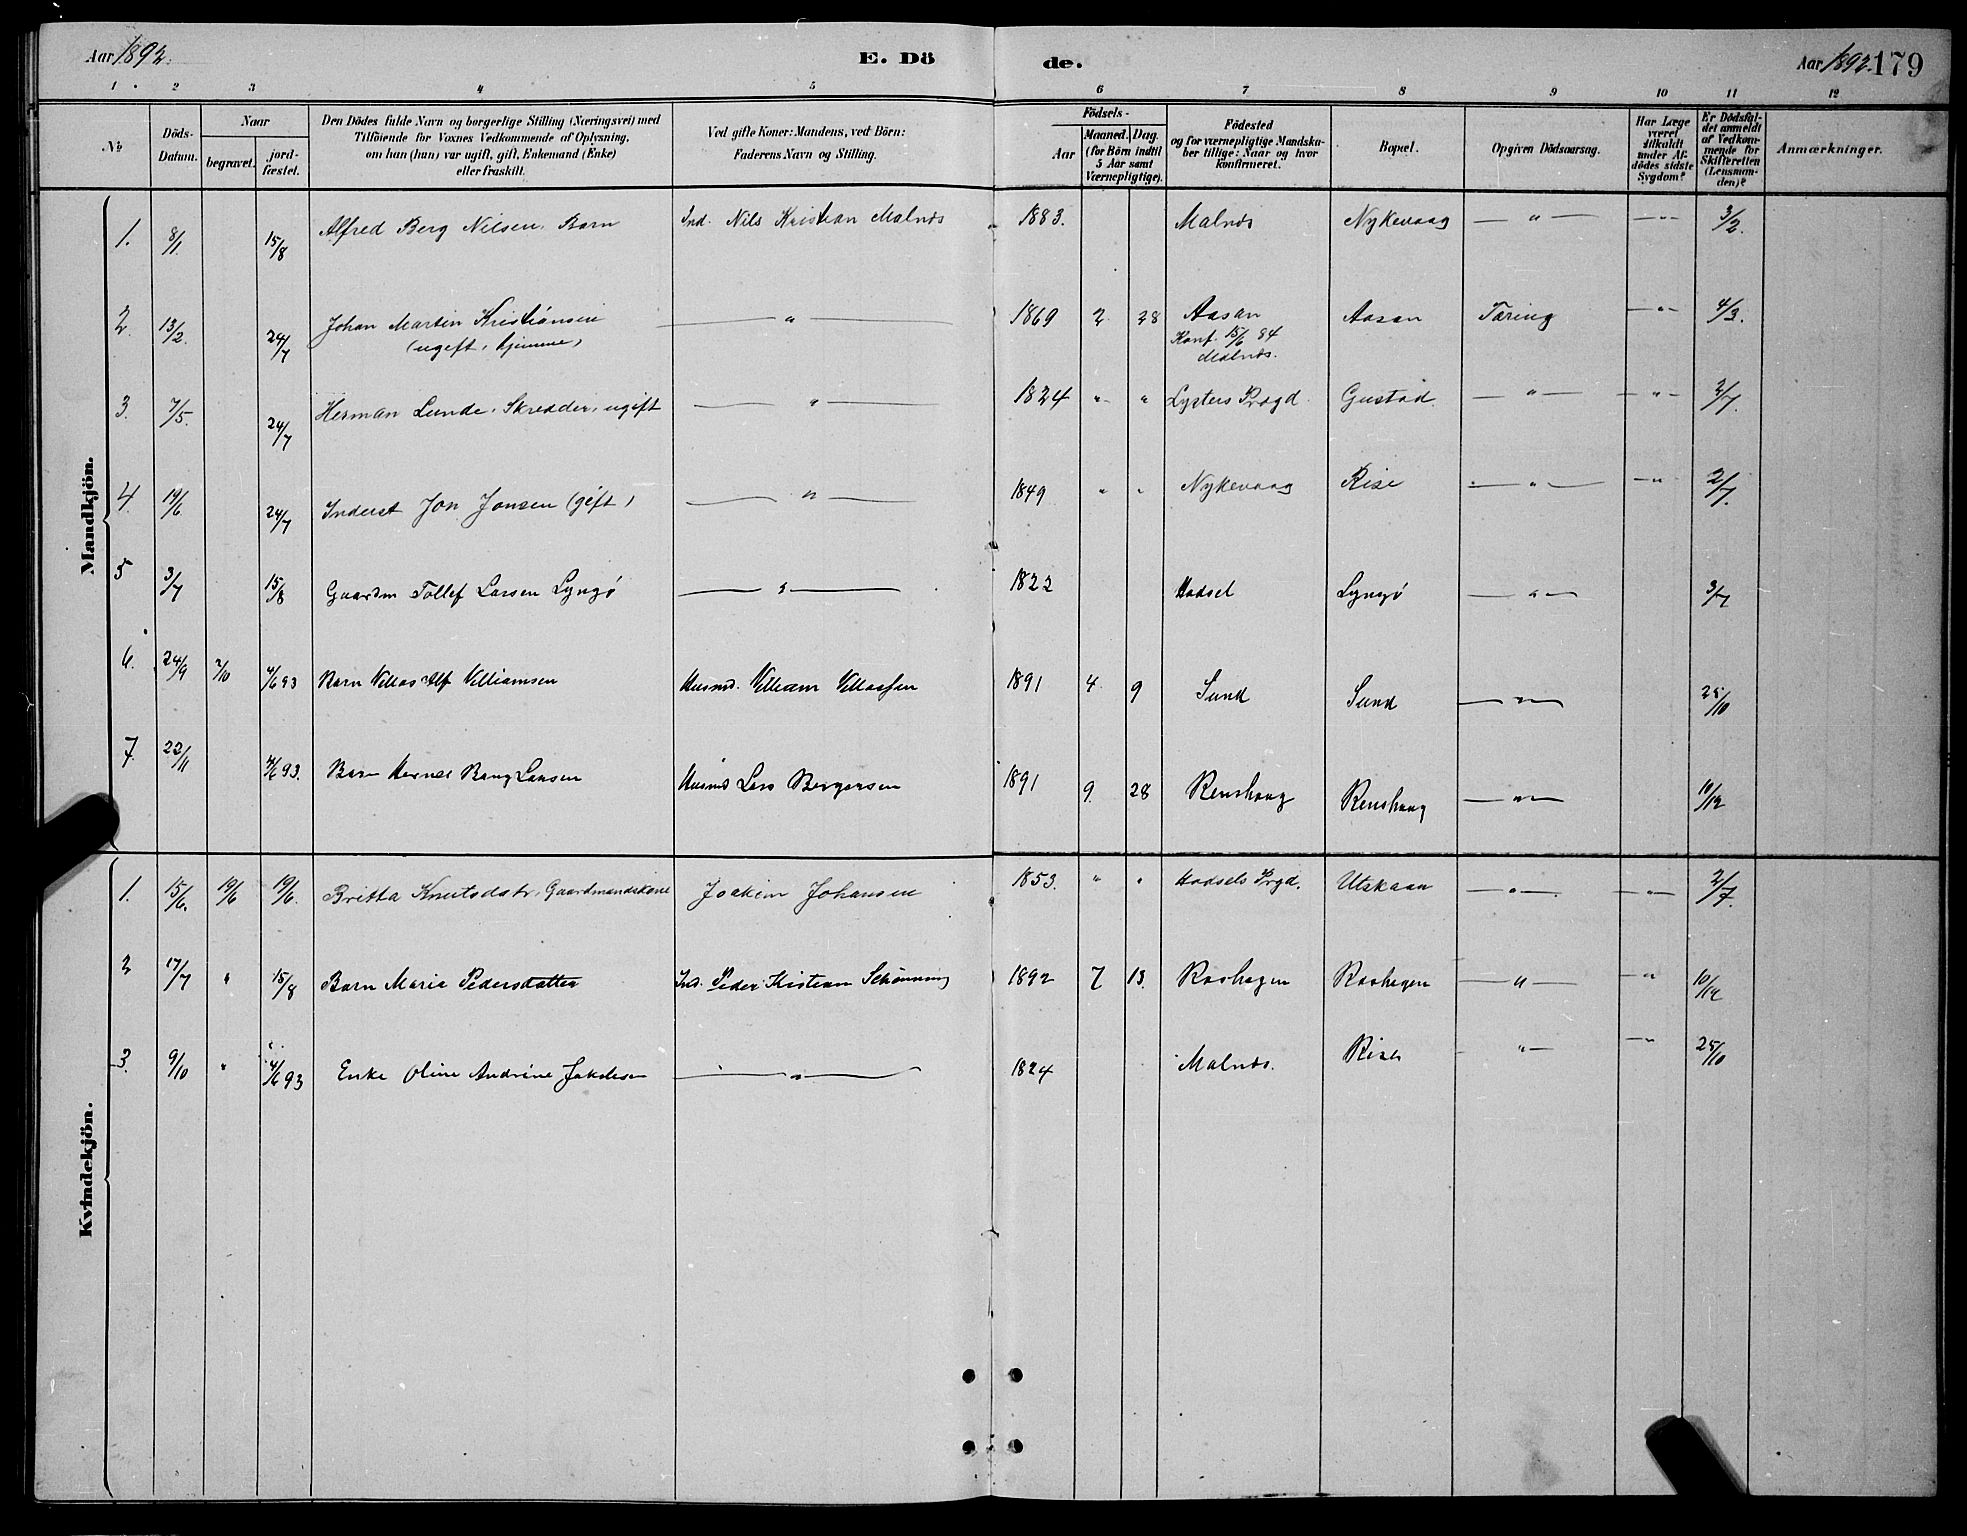 Aar 1892. E. Dö de. Aar 1892. 179
1 2 3 4 5 6 7 8 9 10 11 12
No
Döds-Datum.
Naar
begravet.
jord-fæstet.
Den Dödes fulde Navn og borgerlige Stilling (Næringsvei) med
Tilföiende for Voxnes Vedkommende af Oplysning,
om han (hun) var ugift, gift, Enkemand (Enke)
eller fraskilt.
Ved gifte Koner: Mandens, ved Börn:
Faderens Navn og Stilling.
Födsels-
Aar
Maaned. Dag.
(for Börn indtil
5 Aar samt
Værnepligtige).
Födested
og for værnepligtige Mandska-
ber tillige: Naar og hvor
konfirmeret.
Bopæl.
Opgiven Dödsaarsag.
Har Læge
været
tilkaldt
under Af-
dödes sidste
Sygdom?
Er Dödsfal-
det anmeldt
af Vedkom-
mende for
Skifteretten
(Lensman-
den)?
Anmærkninger.
Mandkjön.
1. 8/1 15/8 Alfred Berg Nilsen. Barn Ind. Nils Kristian Malnes 1883. Malnes Nykevaag — " — — " — 3/2.
2. 13/2. 24/7 Johan Martin Kristiansen — " — 1869 2 28 Aasan Aasan Tæring — " — 4/3.
(ugift, hjemme) Konf. 15/6 84
Malnes.
3. 7/5. 24/7 Herman Lunde. Skredder. ugift — " — 1824 " " Lysters Prægd. Gustad. — " — — " — 2/7.
4. 19/6 24/7 Inderst Jon Jonsen (gift) — " — 1849 " " Nykevaag Rise — " — — " — 2/7.
5 3/7 15/8 Gaardm Tollef Larsen Lyngø — " — 1822 Hadsel Lyngø — " — 3/7
6. 24/9 2/10 4/6 93 Barn Villas Alf Villiamsen Husmd. Villiam Villassen 1891 4. 9 Sund Sund — " — 25/10
7. 22/11 4/6 93. Barn Bang Larsen Husmd Lars Bergersen 1891 9. 28 Renshaug Renshaug — " — 10/12
Kvindekjön.
1. 15/6. 19/6 19/6. Britta Knutsdatr. Gaardmandskone Joakim Johansen 1853. " " Hadsels Prgd. Utskaan — " — — " — 2/7.
2 17/7 " 15/8 Barn Maria Pedersdatter Ind. Peder Kistian Schønning 1892 7 13. Roshagen Roshagen — " — — " — 10/12
3. 9/10 " 4/6 93 Enke Oline Andrine Jakobsen — " — 1824 Malnes. Rise — " — — " — 25/10